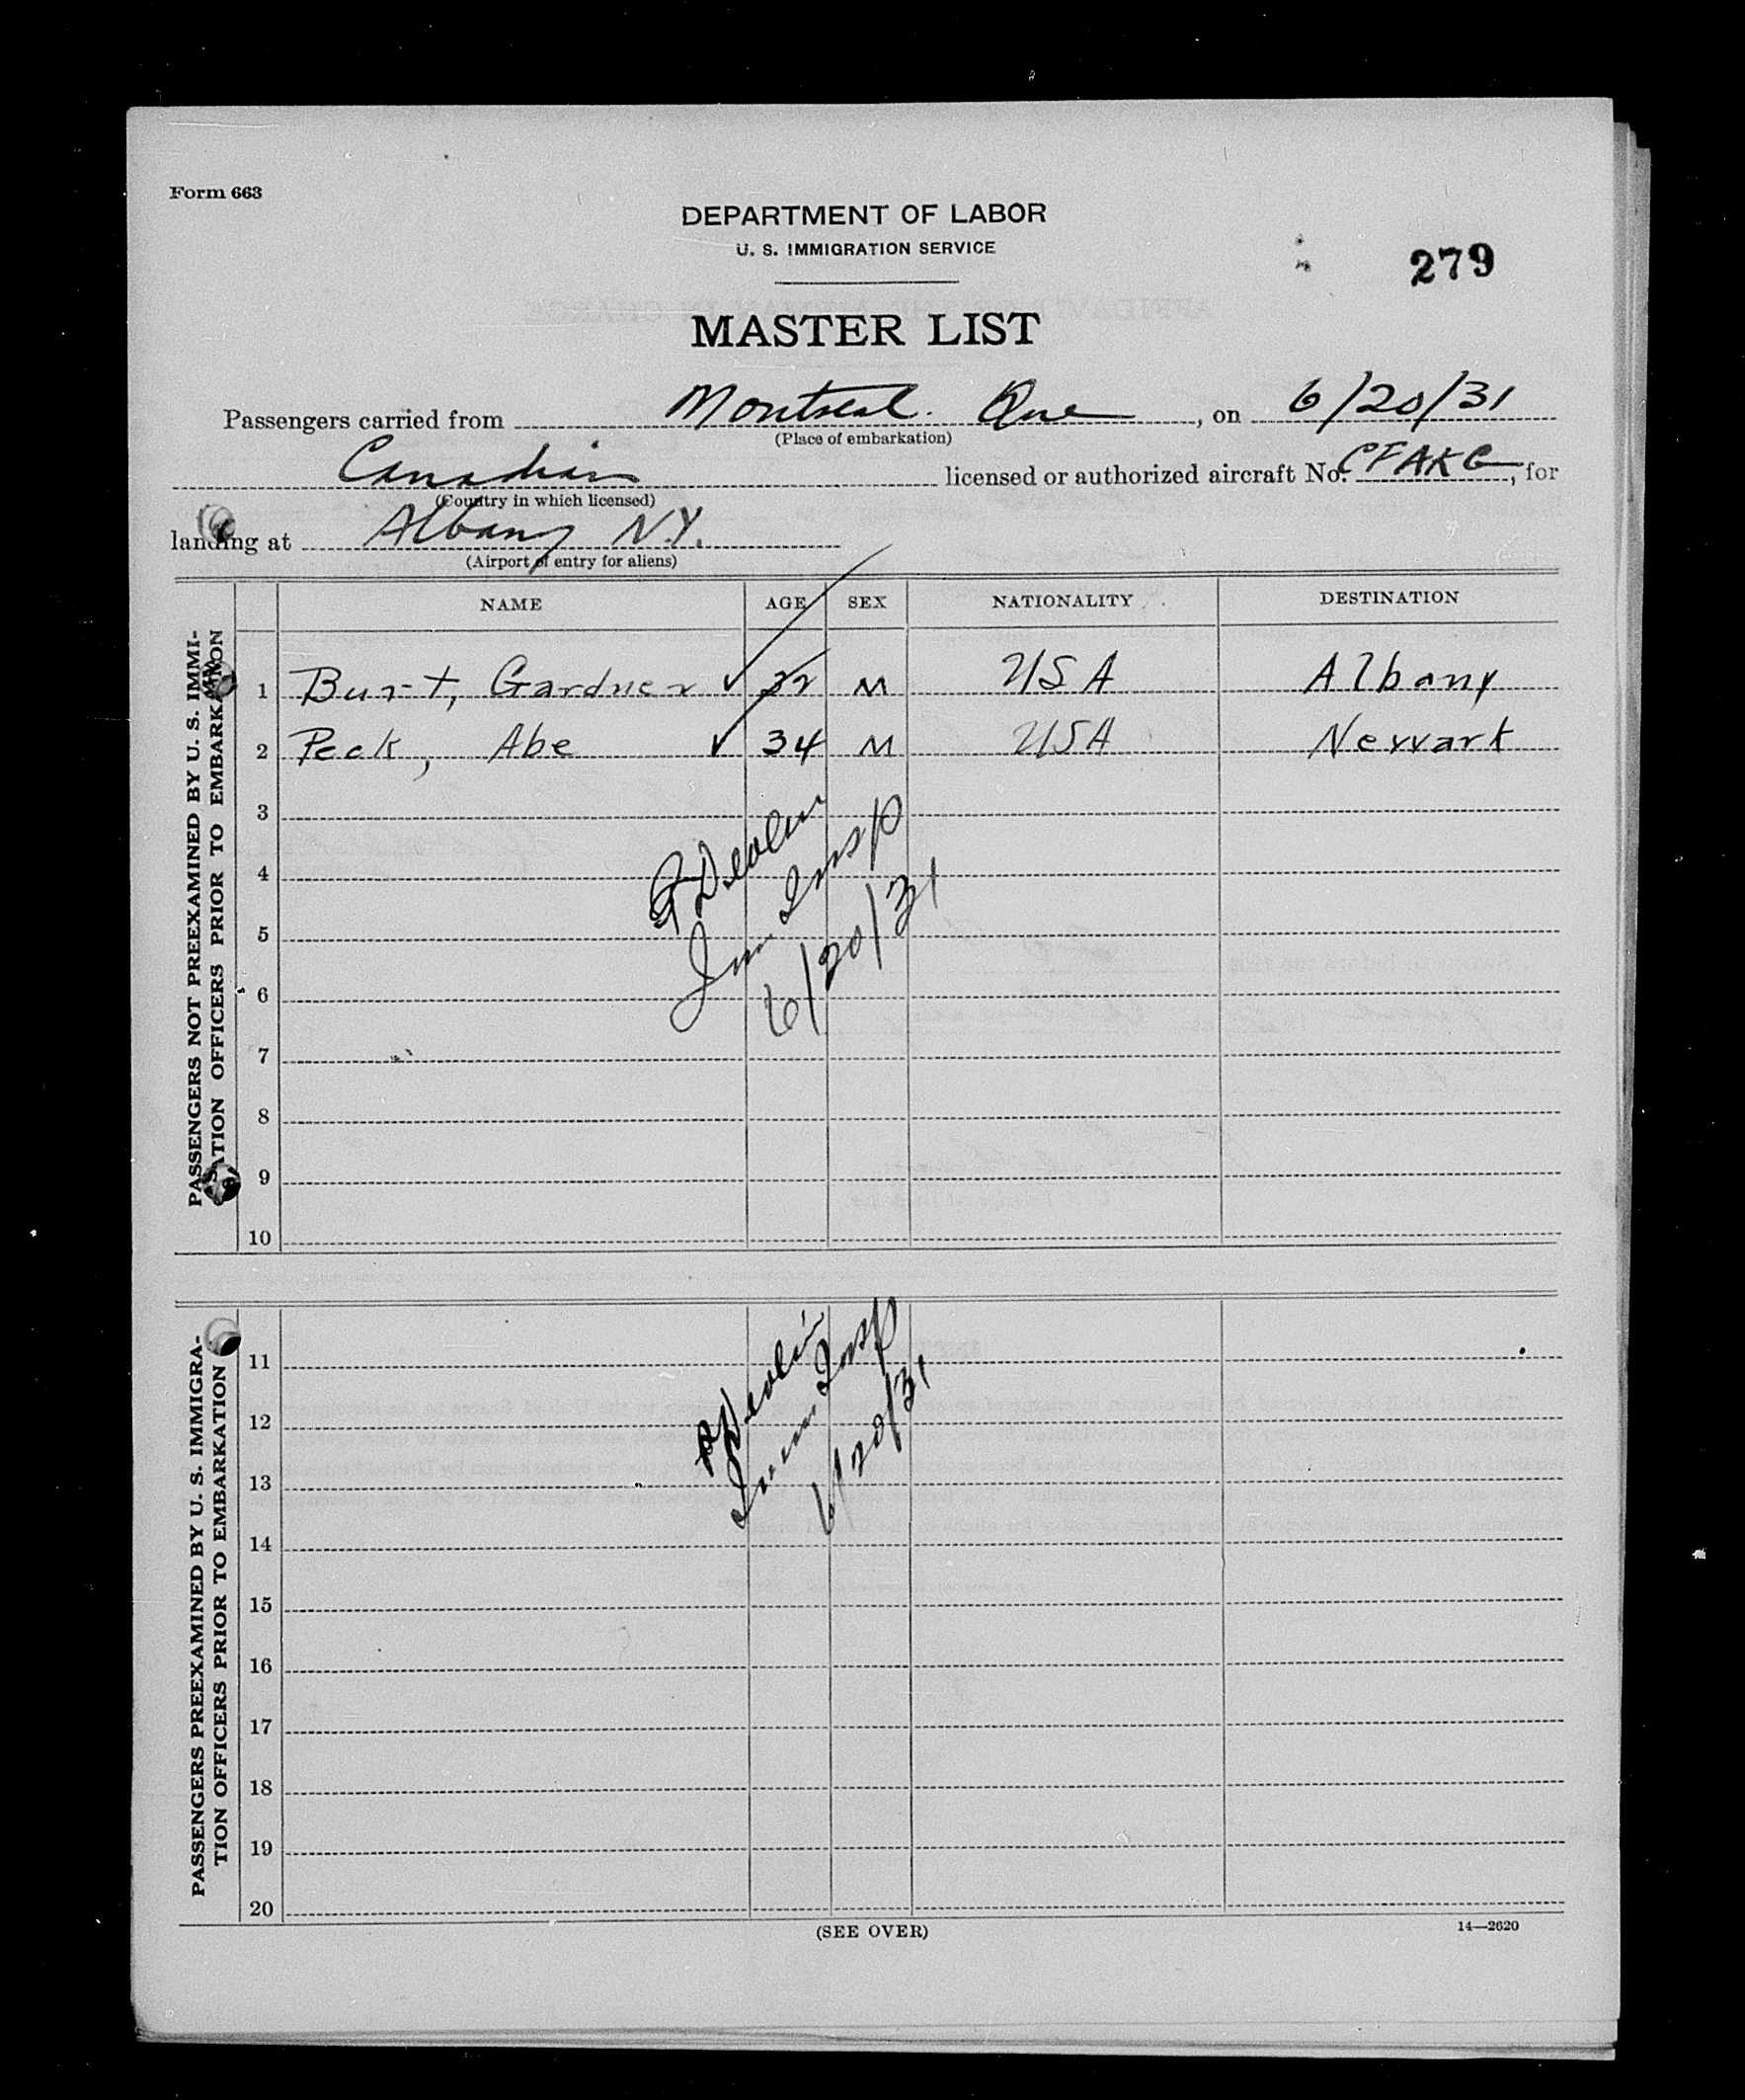 Form 663
DEPARTMENT OF LABOR
U. S. IMMIGRATION SERVICE
279
MASTER LIST
Passengers carried from Montreal. Que, on 6/20/31
(Place of embarkation)
Canadian licensed or authorized aircraft No. CFAKG, for
(Country in which licensed)
landing at Albany N.Y.
(Airport of entry for aliens)
NAME AGE SEX NATIONALITY DESTINATION
PASSENGERS NOT PREEXAMINED BY U. S. IMMI-
GRATION OFFICERS PRIOR TO EMBARKATION
1 Burt, Gardner ✓ 32 M USA Albany
2 Peck, Abe ✓ 34 M USA Newark
3
4
5
6
7
8
9
10
Devlin
Imm Insp
6/20/31
PASSENGERS PREEXAMINED BY U. S. IMMIGRA-
TION OFFICERS PRIOR TO EMBARKATION
11
12
13
14
15
16
17
18
19
20
Devlin
Imm Insp
6/20/31
(SEE OVER)
14—2620